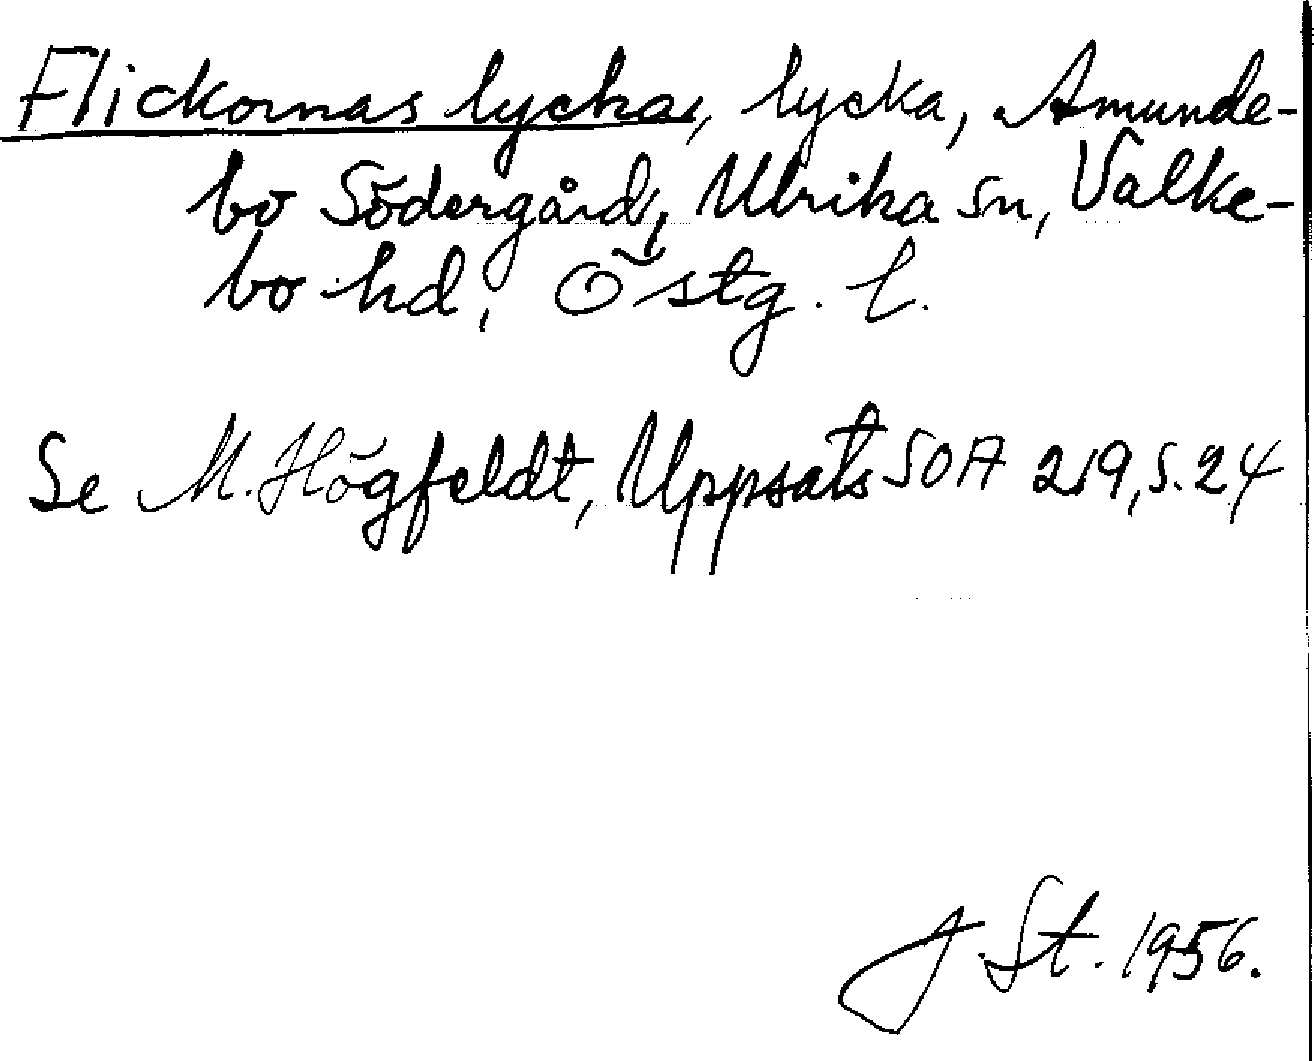 Flickornas lycka, lycka, Amunde-
bo Södergård, Ulrika sn, Valke-
bo hd, Östg. l.
Se M. Högfeldt, Uppsats SOA 219, s. 24
J. St. 1956.